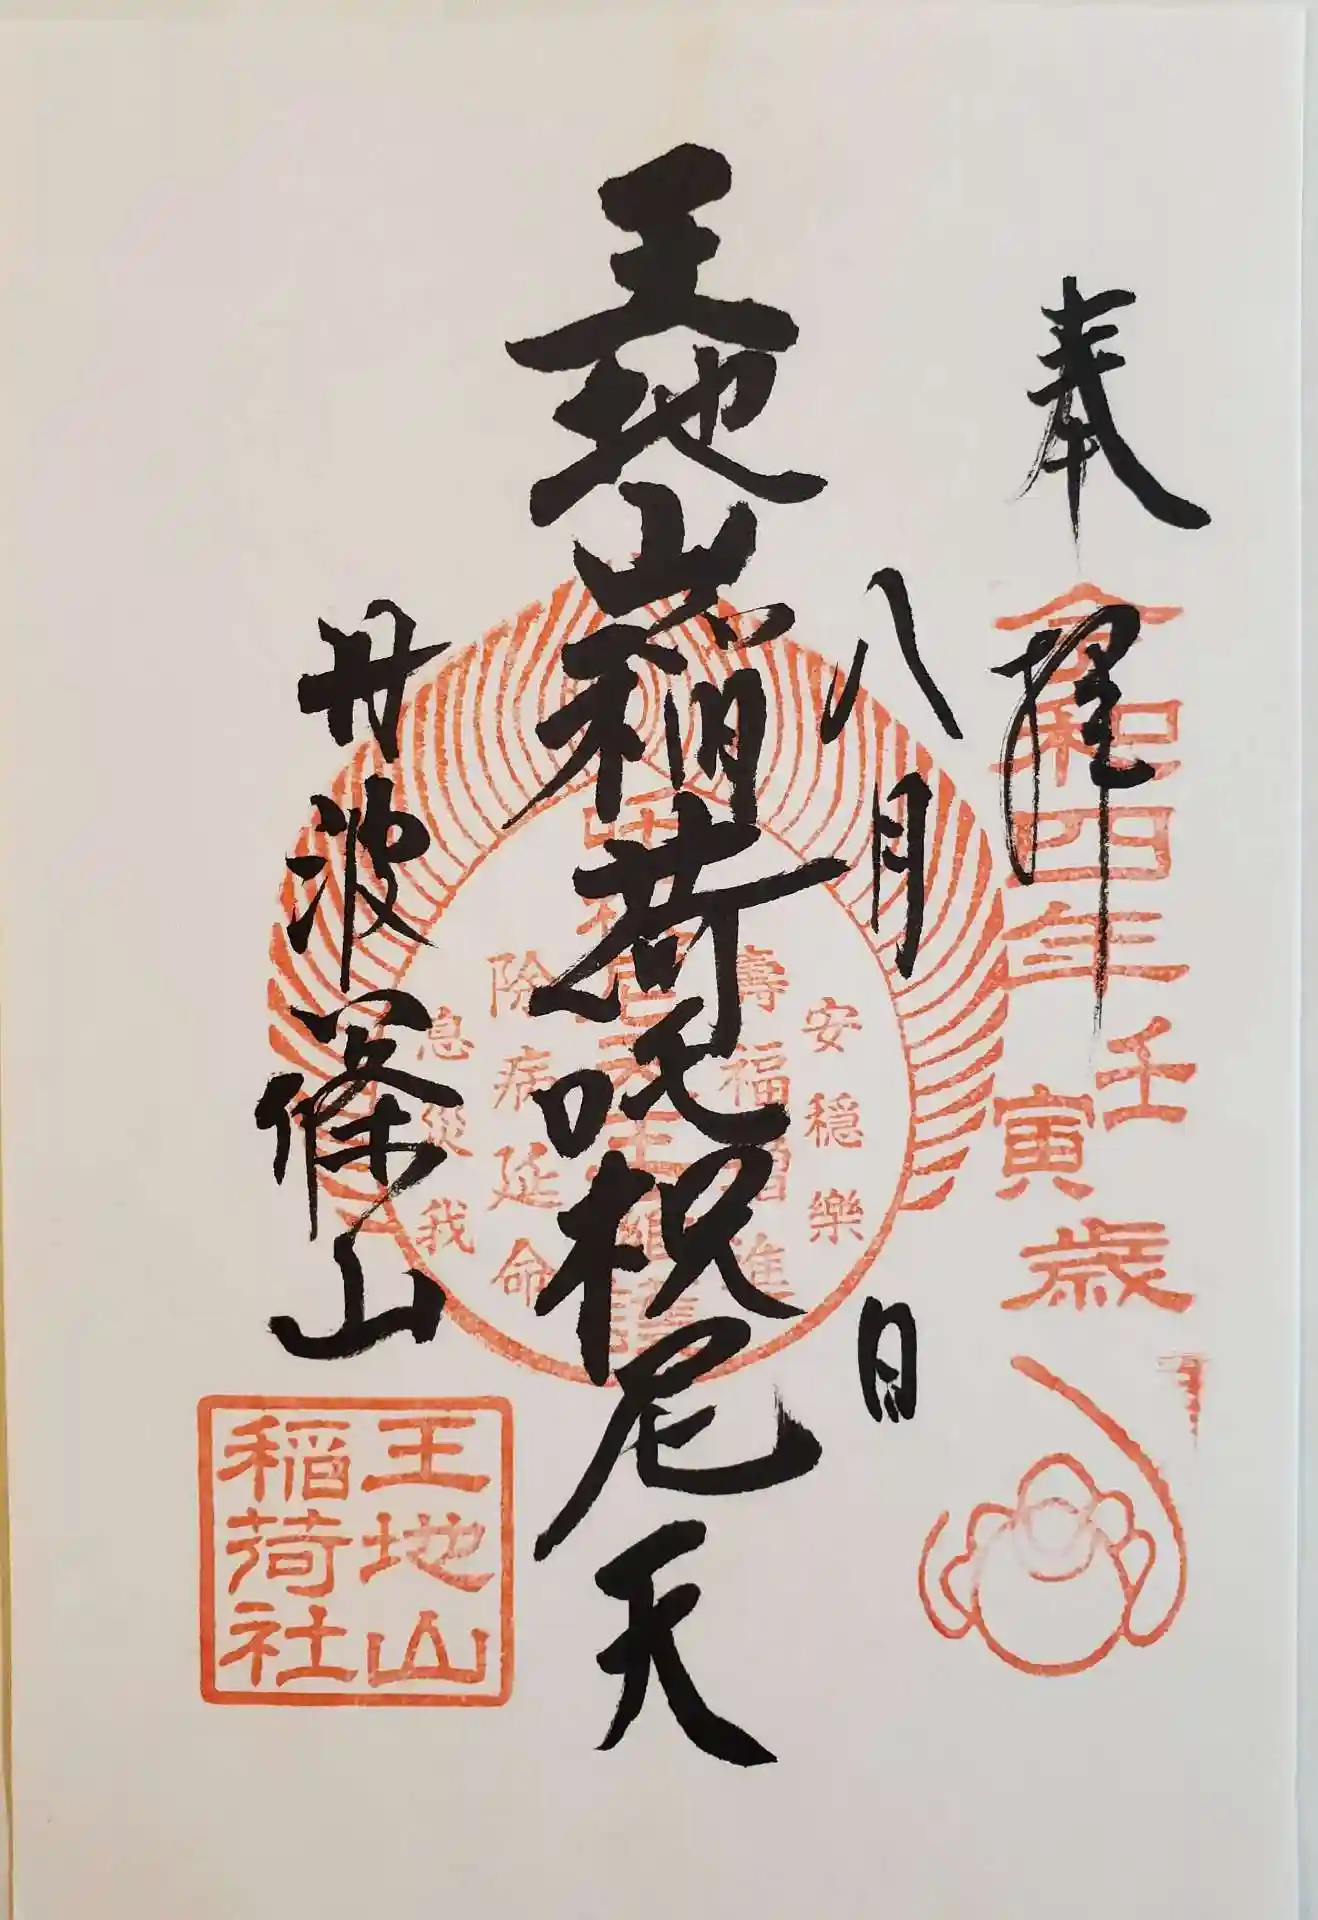 奉拝
令和四年壬寅歳
八月 日
王地山稲荷吒枳尼天
安穏樂
壽福増進
除病延命
息災我
丹波篠山
王地山
稲荷社